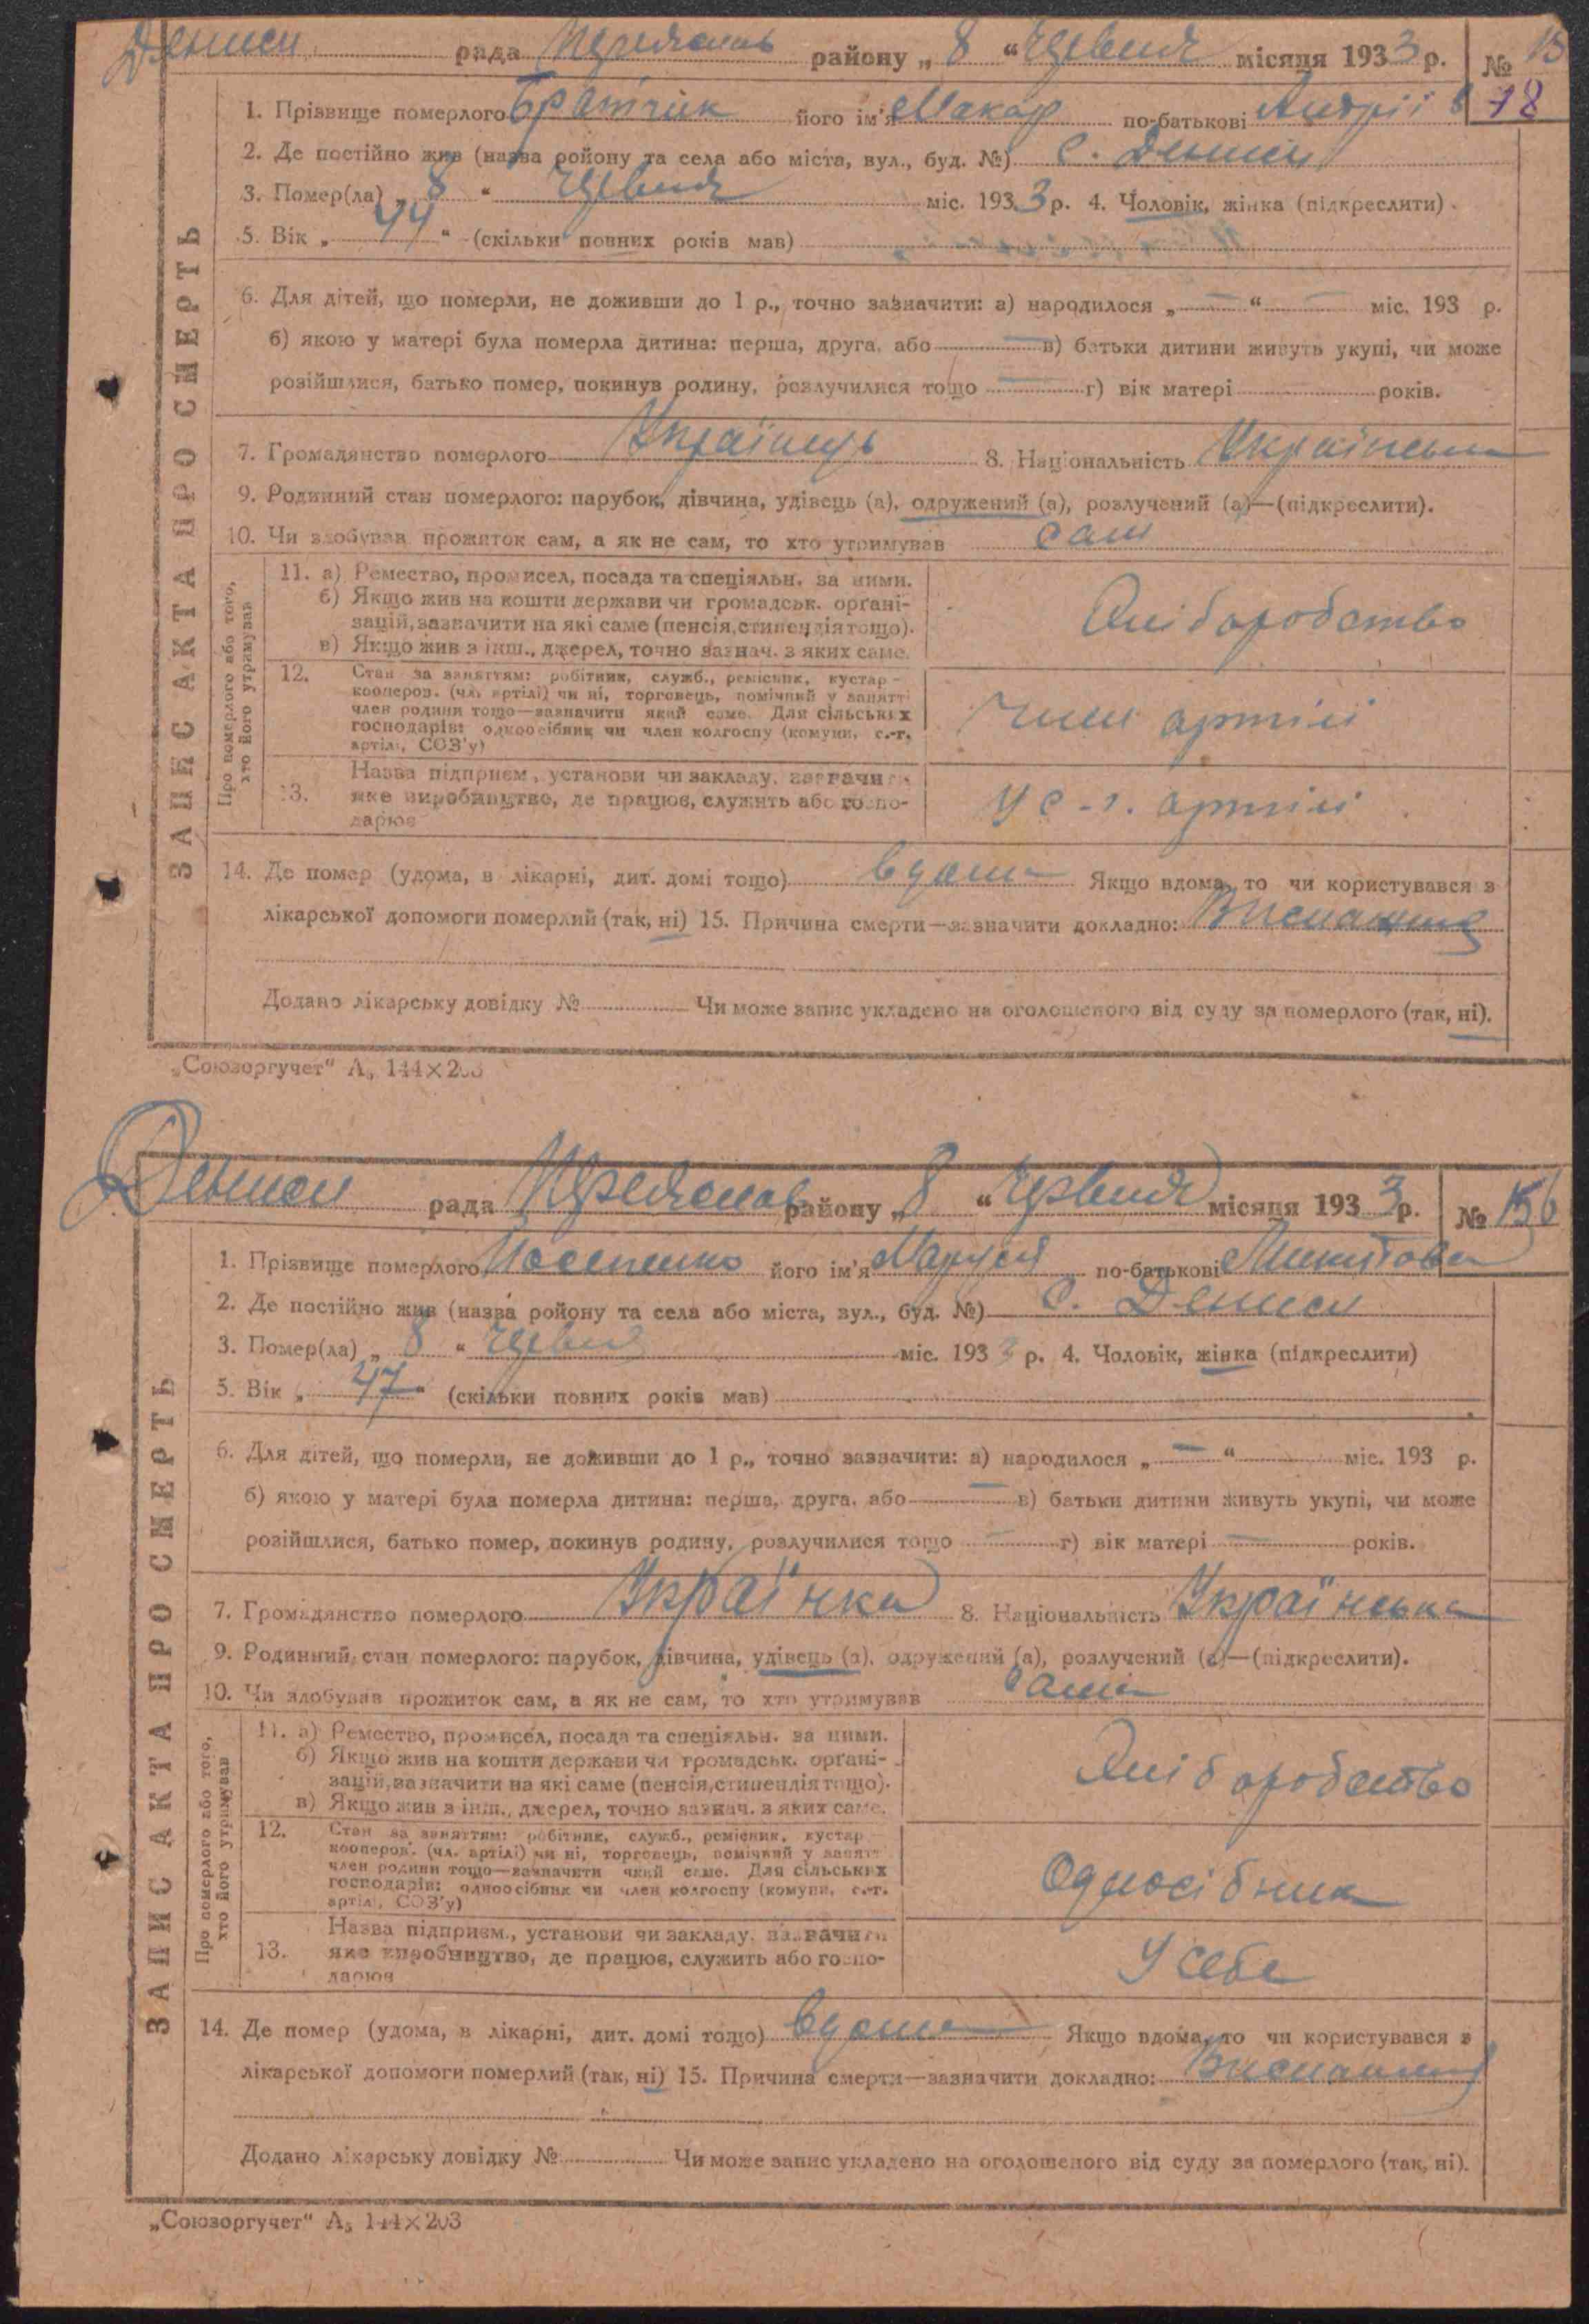 Дениси рада Переяслав району „ 8 “ Червня місяця 1933 р. № 15
78
1. Прізвище померлого Братчик його ім'я Макар по-батькові Андріїв
2. Де постійно жив (назва ройону та села або міста, вул., буд. №) с. Дениси
3. Помер(ла) „ 8 “ Червня міс. 1933 р. 4. Чоловік, жінка (підкреслити)
5. Вік „ 44 “ (скільки повних років мав)
6. Для дітей, що померли, не доживши до 1 р., точно зазначити: а) народилося „ — “ — міс. 193 р.
б) якою у матері була померла дитина: перша, друга, або — в) батьки дитини живуть укупі, чи може
розійшлися, батько помер, покинув родину, розлучилися тощо — г) вік матері років.
7. Громадянство померлого Українець 8. Національність Українська
9. Родинний стан померлого: парубок, дівчина, удівець (а), одружений (а), розлучений (а)—(підкреслити).
10. Чи здобував прожиток сам, а як не сам, то хто утримував сам
ЗАПИС АКТА ПРО СМЕРТЬ
Про померлого або того, хто його утримував
11. а) Ремество, промисел, посада та спеціяльн. за ними.
б) Якщо жив на кошти держави чи громадськ. орґані-
зацій, зазначити на які саме (пенсія, стипендія тощо).
в) Якщо жив з інш., джерел, точно зазнач. з яких саме.
Хліборобство
12. Стан за заняттям: робітник, служб., ремісник, кустар-
кооперов. (чл. артілі) чи ні, торговець, помічний у занятт
член родини тощо—зазначити який саме. Для сільських
господарів: одноосібник чи член колгоспу (комуни, с.-г.
артілі, СОЗ'у)
член артілі
13. Назва підприєм., установи чи закладу, зазначити
яке виробництво, де працює, служить або госпо-
дарює
У с-г. артілі
14. Де помер (удома, в лікарні, дит. домі тощо) вдома Якщо вдома, то чи користувався з
лікарської допомоги померлий (так, ні) 15. Причина смерти—зазначити докладно: Виснаження
Додано лікарську довідку № Чи може запис укладено на оголошеного від суду за померлого (так, ні).
„Союзоргучет“ А₅ 144×203
Дениси рада Переяслав району „ 8 “ Червня місяця 1933 р. № 156
1. Прізвище померлого його ім'я Маруся по-батькові Микитовна
2. Де постійно жив (назва ройону та села або міста, вул., буд. №) с. Дениси
3. Помер(ла) „ 8 “ Червня міс. 1933 р. 4. Чоловік, жінка (підкреслити)
5. Вік „ 47 “ (скільки повних років мав)
6. Для дітей, що померли, не доживши до 1 р., точно зазначити: а) народилося „ — “ міс. 193 р.
б) якою у матері була померла дитина: перша, друга, або — в) батьки дитини живуть укупі, чи може
розійшлися, батько помер, покинув родину, розлучилися тощо — г) вік матері — років.
7. Громадянство померлого Українка 8. Національність Українська
9. Родинний стан померлого: парубок, дівчина, удівець (а), одружений (а), розлучений (а)—(підкреслити).
10. Чи здобував прожиток сам, а як не сам, то хто утримував сама
ЗАПИС АКТА ПРО СМЕРТЬ
Про померлого або того, хто його утримував
11. а) Ремество, промисел, посада та спеціяльн. за ними.
б) Якщо жив на кошти держави чи громадськ. орґані-
зацій, зазначити на які саме (пенсія, стипендія тощо).
в) Якщо жив з інш., джерел, точно зазнач. з яких саме.
Хліборобство
12. Стан за заняттям: робітник, служб., ремісник, кустар
кооперов. (чл. артілі) чи ні, торговець, помічний у занятт
член родини тощо—зазначити який саме. Для сільських
господарів: одноосібник чи член колгоспу (комуни, с.-г.
артілі, СОЗ'у)
Односібник
13. Назва підприєм., установи чи закладу, зазначити
яке виробництво, де працює, служить або госпо-
дарює
У себе
14. Де помер (удома, в лікарні, дит. домі тощо) вдома Якщо вдома, то чи користувався з
лікарської допомоги померлий (так, ні) 15. Причина смерти—зазначити докладно: Виснаження
Додано лікарську довідку № Чи може запис укладено на оголошеного від суду за померлого (так, ні).
„Союзоргучет“ А₅ 144×203